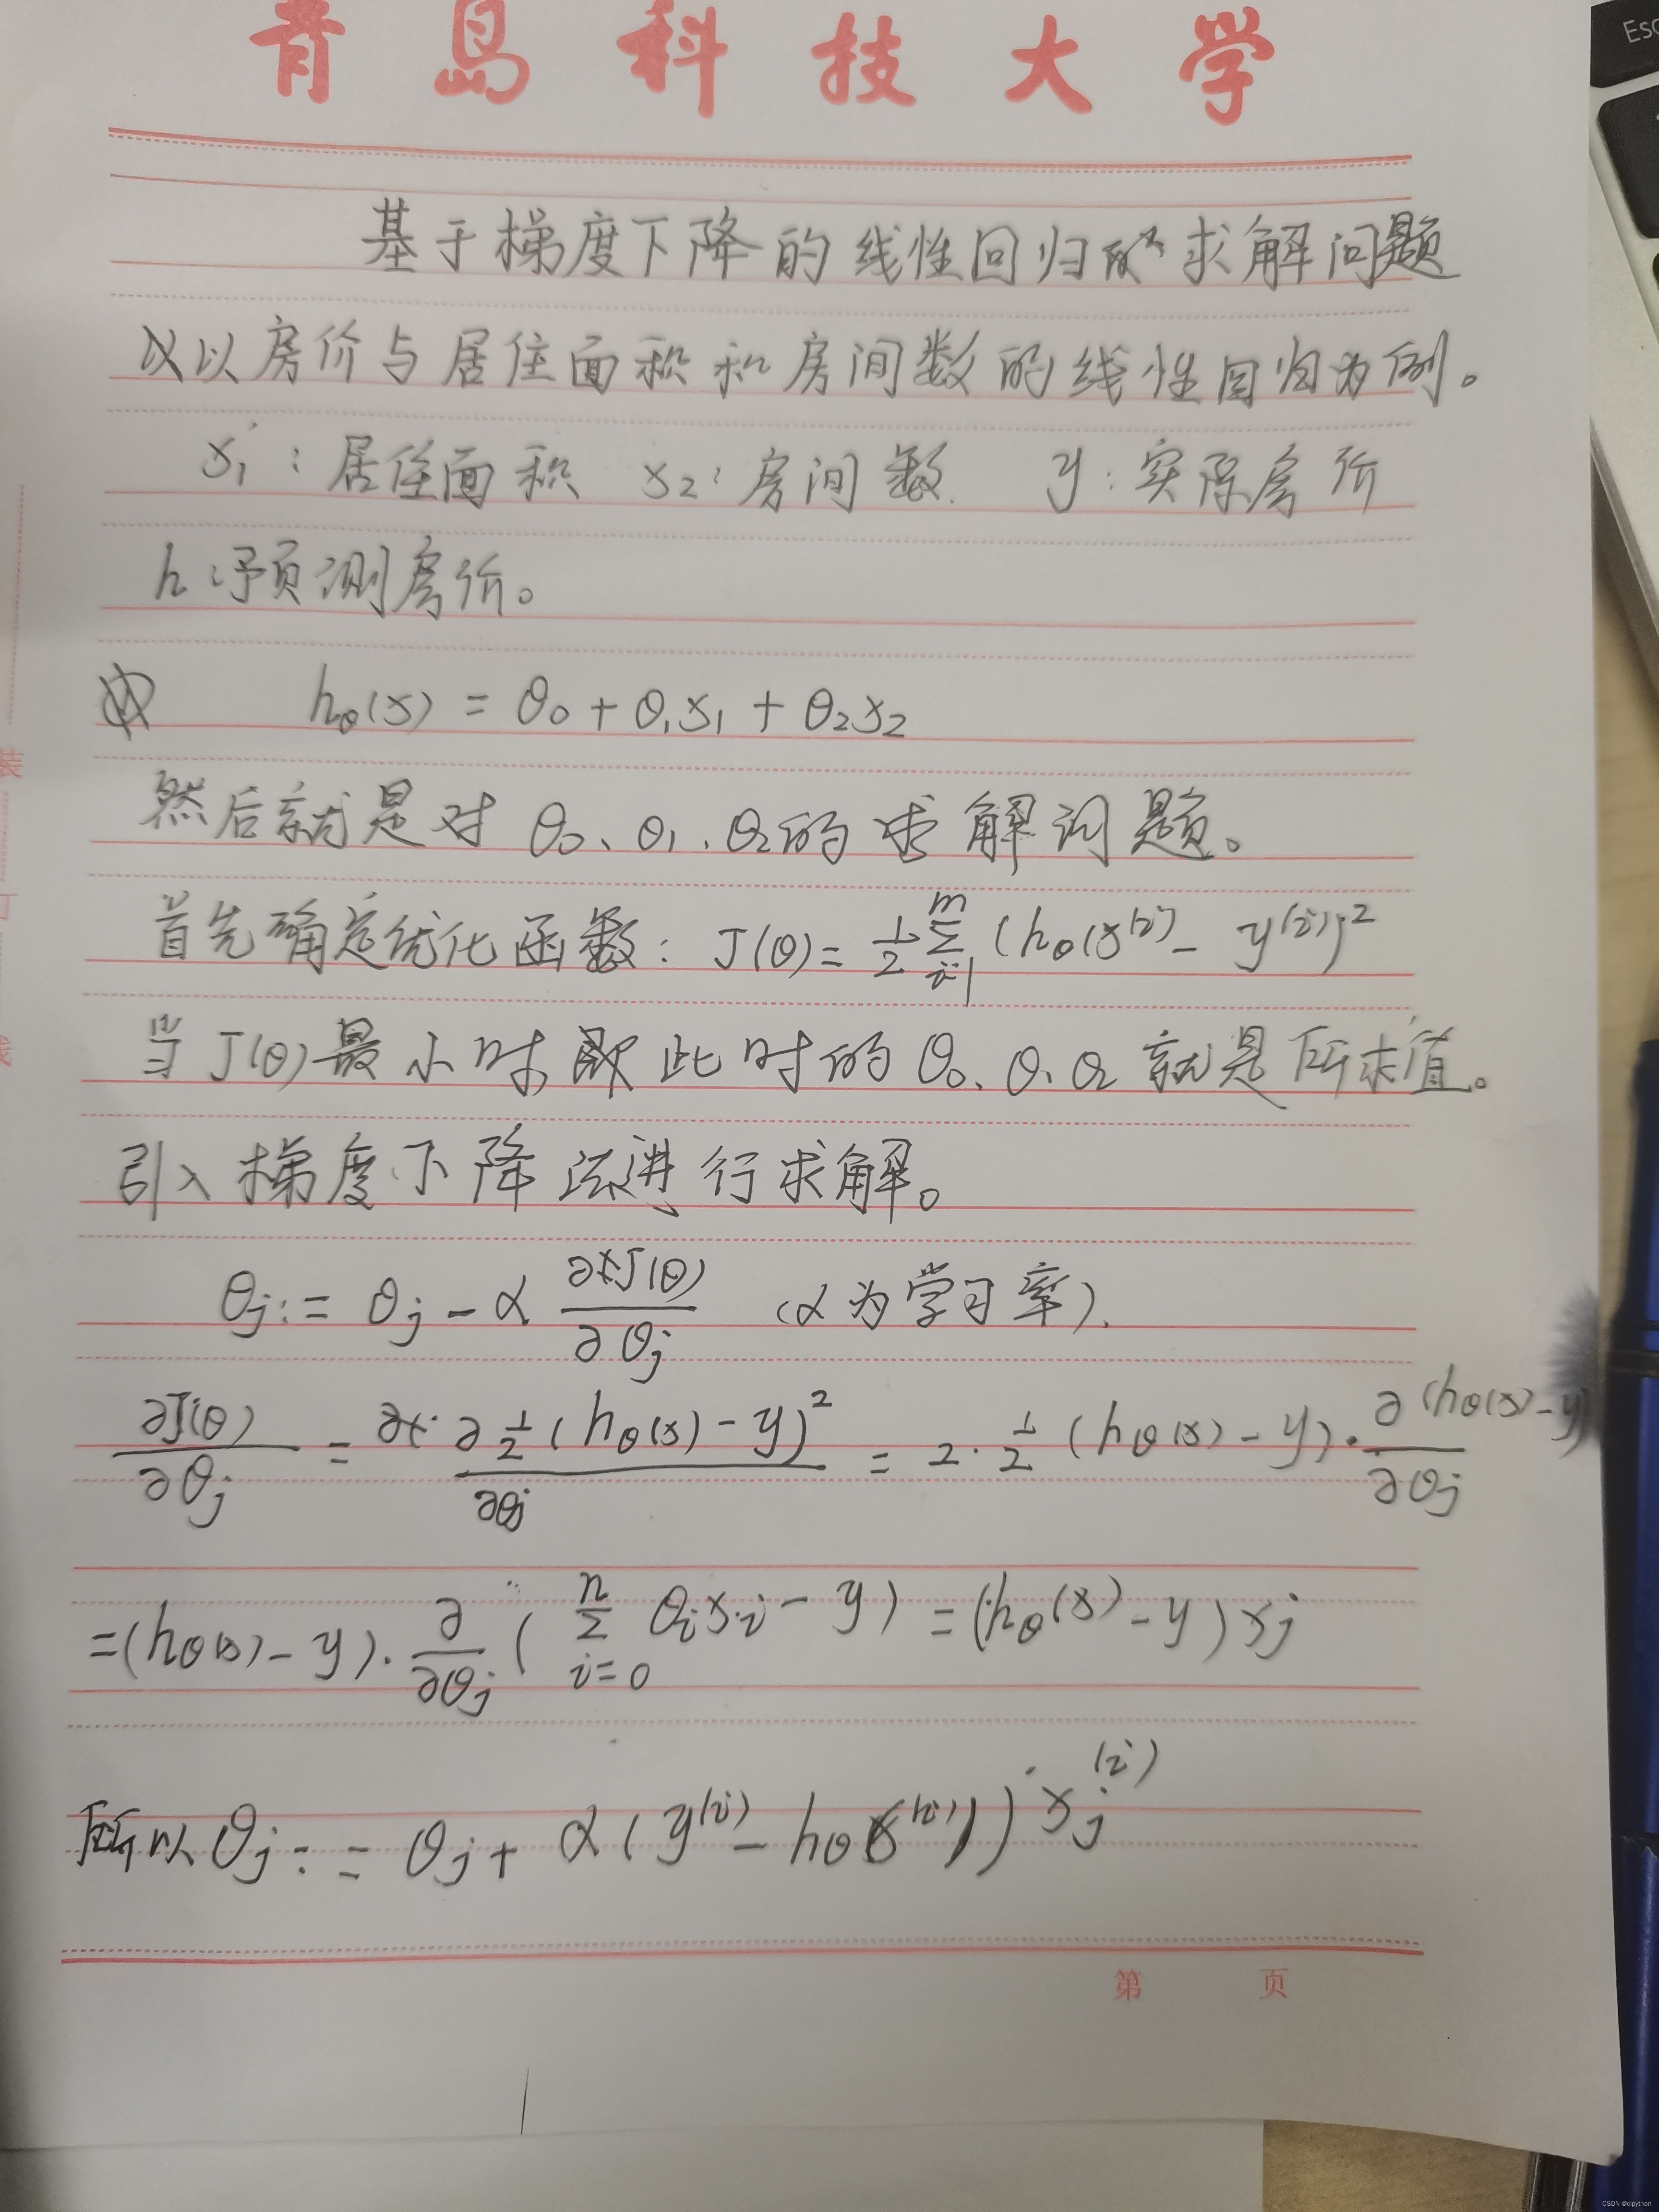 青岛科技大学
基于梯度下降的线性回归 求解问题
以房价与居住面积和房间数的线性回归为例。
x₁:居住面积 x₂:房间数 y:实际房价
h:预测房价。
h_θ(x) = θ₀ + θ₁x₁ + θ₂x₂
然后就是对 θ₀、θ₁、θ₂的求解问题。
首先确定优化函数: J(θ) = 1/2 ∑_{i=1}^{m} (h_θ(x^{(i)} - y^{(i)})²
当 J(θ) 最小时 此时的 θ₀、θ₁ θ₂ 就是所求值。
引入梯度下降法进行求解。
θj := θj - α ∂J(θ)/∂θj (α为学习率).
∂J(θ)/∂θj = ∂ 1/2 (h_θ(x) - y)² / ∂θj = 2 · 1/2 (h_θ(x) - y) · ∂(h_θ(x) - y)/∂θj
= (h_θ(x) - y) · ∂/∂θj ( ∑_{i=0}^{n} θᵢxᵢ - y) = (h_θ(x) - y) xj
所以 θj := θj + α (y^{(i)} - h_θ(x^{(i)})) xj^{(i)}
第 页
装
订
线
Esc
CSDN @clpython